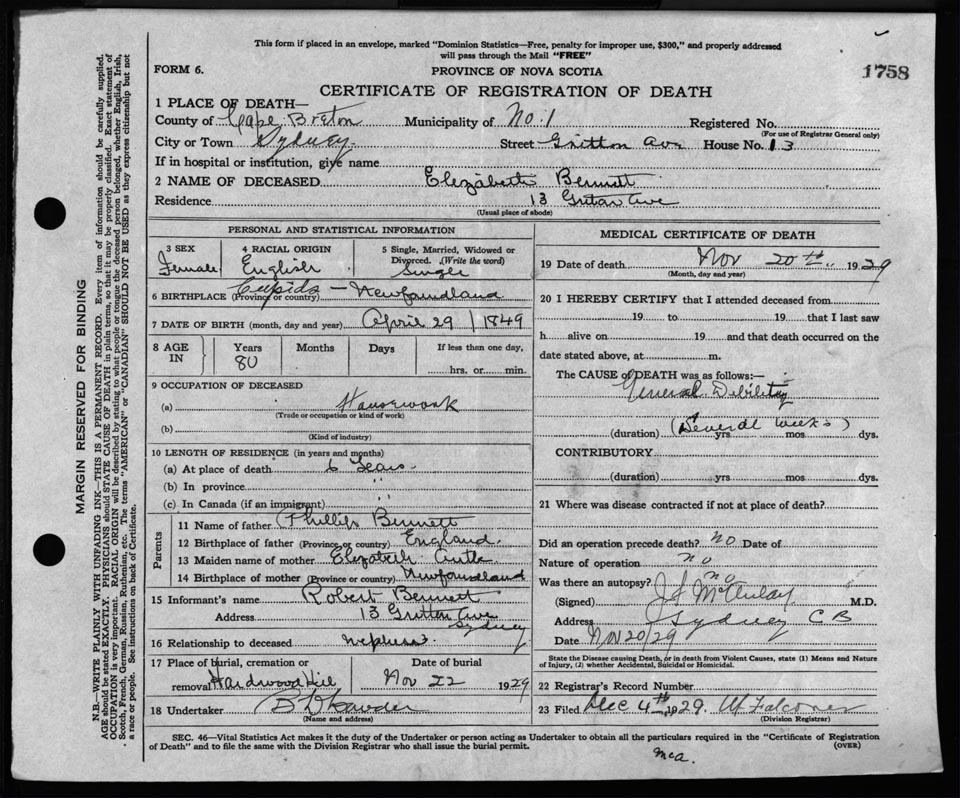 This form if placed in an envelope, marked "Dominion Statistics—Free, penalty for improper use, $300," and properly addressed
will pass through the Mail "FREE"
FORM 6.
PROVINCE OF NOVA SCOTIA
1758
CERTIFICATE OF REGISTRATION OF DEATH
1 PLACE OF DEATH—
County of Cape Breton Municipality of No. 1 Registered No.
(For use of Registrar General only)
City or Town Sydney Street Gritton Ave House No. 13
If in hospital or institution, give name
2 NAME OF DECEASED Elizabeth Bennett
Residence 13 Ave
(Usual place of abode)
PERSONAL AND STATISTICAL INFORMATION
3 SEX 4 RACIAL ORIGIN 5 Single, Married, Widowed or
Divorced. (Write the word)
Female English Single
6 BIRTHPLACE (Province or country) Cupids – Newfoundland
7 DATE OF BIRTH (month, day and year) April 29 / 1849
8 AGE IN Years Months Days If less than one day,
80 hrs. or min.
9 OCCUPATION OF DECEASED
(a) Housework
(Trade or occupation or kind of work)
(b)
(Kind of industry)
10 LENGTH OF RESIDENCE (in years and months)
(a) At place of death 6 Years
(b) In province "
(c) In Canada (if an immigrant) "
Parents
11 Name of father Phillip Bennett
12 Birthplace of father (Province or country) England
13 Maiden name of mother Elizabeth
14 Birthplace of mother (Province or country) Newfoundland
15 Informant's name Robert Bennett
Address 13 Gritton Ave
Sydney
16 Relationship to deceased nephew
17 Place of burial, cremation or Date of burial
removal Hardwood Hill Nov 22 1929
18 Undertaker
(Name and address)
MEDICAL CERTIFICATE OF DEATH
19 Date of death Nov 20th 1929
(Month, day and year)
20 I HEREBY CERTIFY that I attended deceased from
19 to 19 that I last saw
h alive on 19 and that death occurred on the
date stated above, at m.
The CAUSE OF DEATH was as follows:—
General Debility
(Several weeks)
(duration) yrs mos dys.
CONTRIBUTORY
(duration) yrs mos dys.
21 Where was disease contracted if not at place of death?
Did an operation precede death? No Date of
Nature of operation no
Was there an autopsy? no
(Signed) M.D.
Address Sydney C B
Date Nov 20/29
State the Disease causing Death, or in death from Violent Causes, state (1) Means and Nature
of Injury, (2) whether Accidental, Suicidal or Homicidal.
22 Registrar's Record Number
23 Filed Dec 4th 1929. Falconer
(Division Registrar)
SEC. 46—Vital Statistics Act makes it the duty of the Undertaker or person acting as Undertaker to obtain all the particulars required in the "Certificate of Registration
of Death" and to file the same with the Division Registrar who shall issue the burial permit.
(OVER)
MARGIN RESERVED FOR BINDING
N.B.—WRITE PLAINLY WITH UNFADING INK—THIS IS A PERMANENT RECORD. Every item of information should be carefully supplied.
AGE should be stated EXACTLY. PHYSICIANS should STATE CAUSE OF DEATH in plain terms, so that it may be properly classified. Exact statement of
OCCUPATION is very important. RACIAL ORIGIN will be described by stating to what people or tongue the deceased person belonged, whether English, Irish,
Scotch, French, German, Russian, Ruthenian, etc. The terms "AMERICAN" or "CANADIAN" SHOULD NOT BE USED as they express citizenship but not
a race or people. See instructions on back of Certificate.